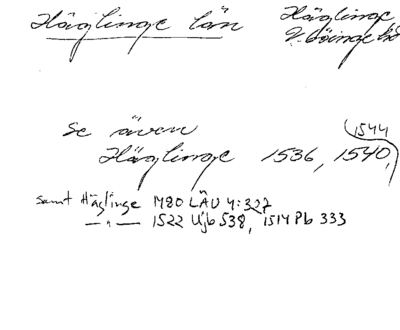 Häglinge län
Häglinge
V. Göinge hd
Se även
Häglinge 1536, 1540,
1544
samt Häglinge 1480 LÄU 4:327
—"— 1522 Ujb 538, 1514 Pb 333